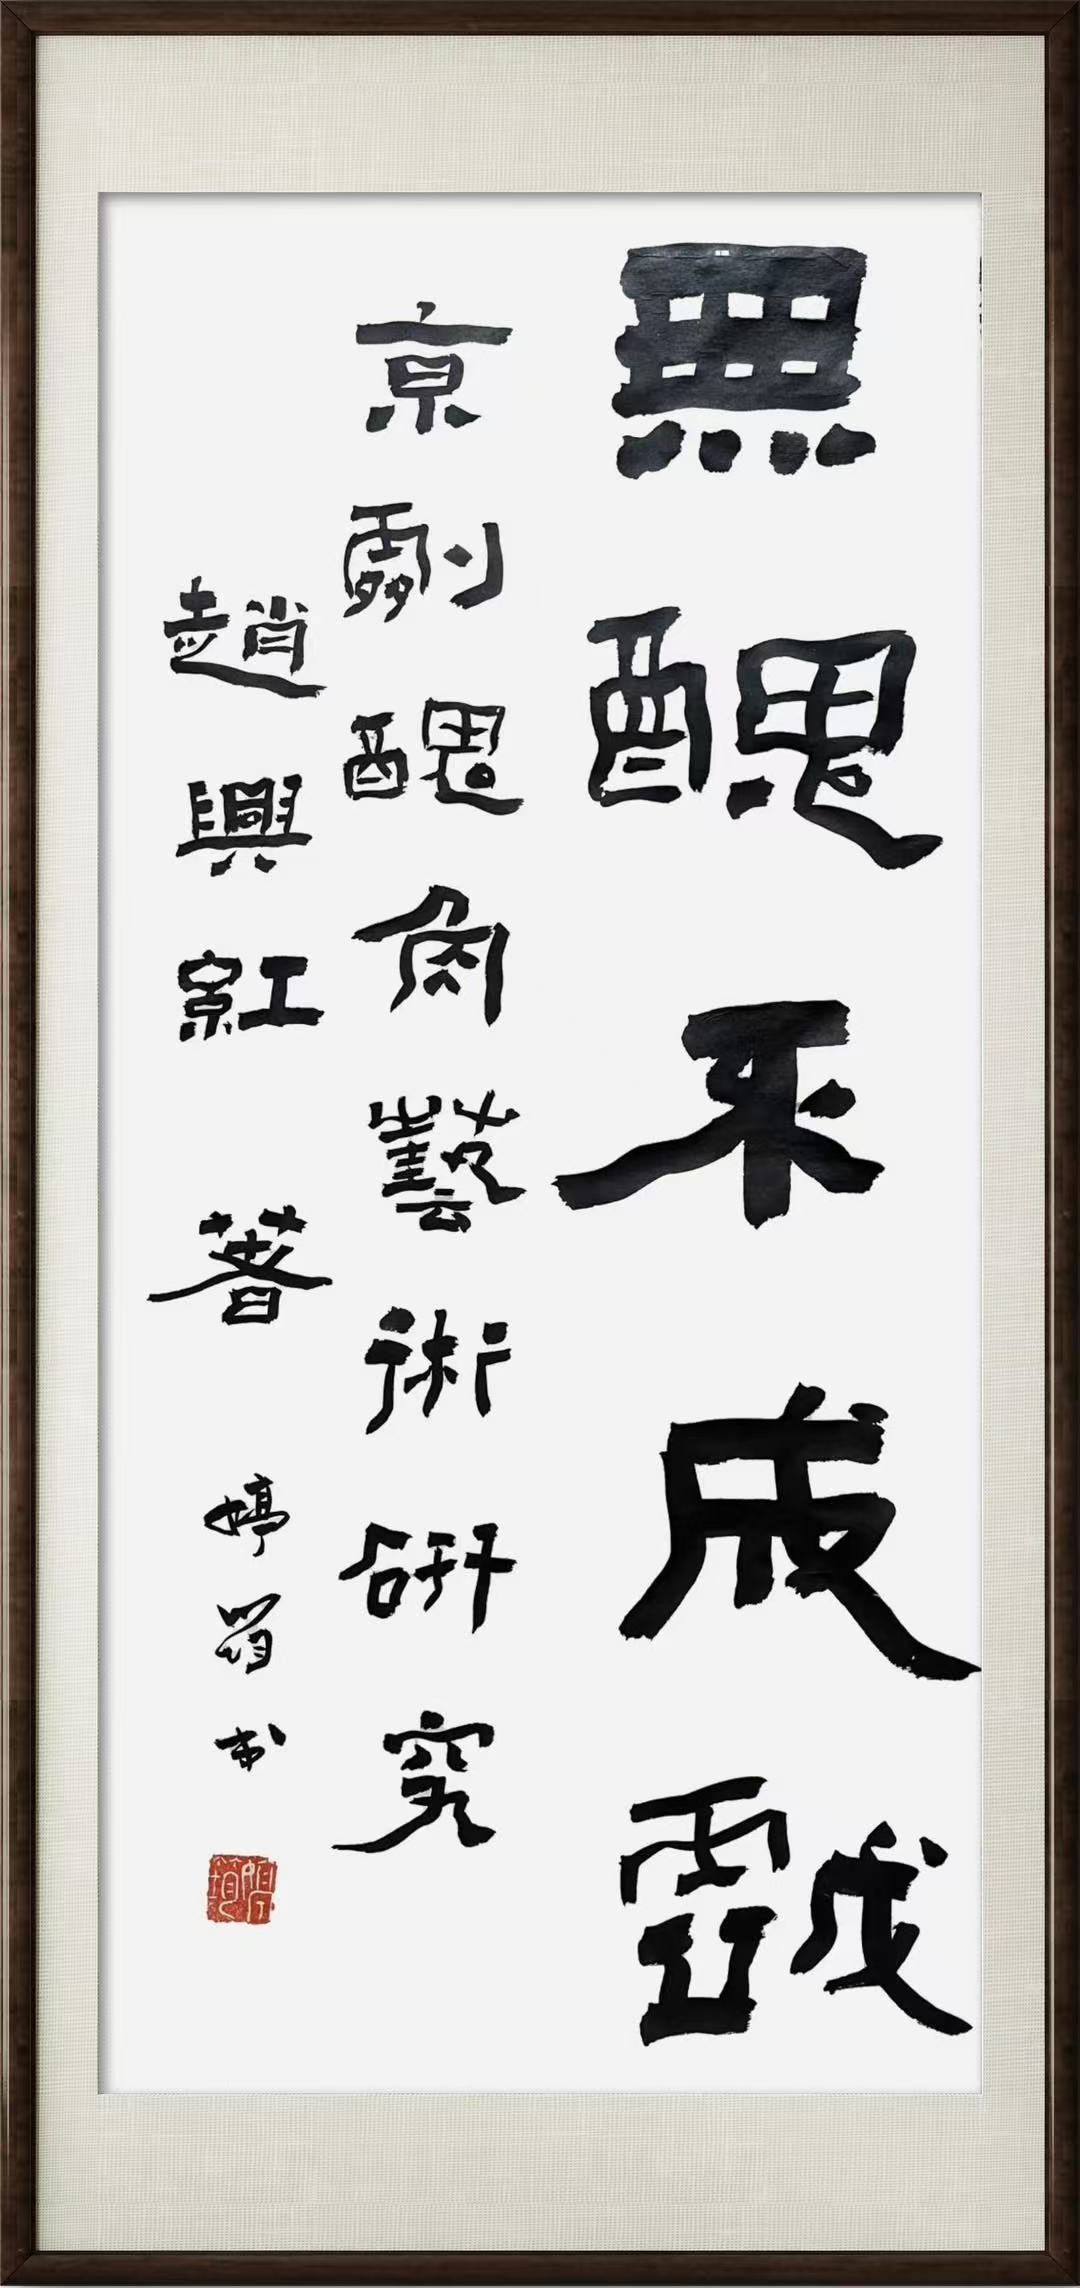 無醜不成戲
京劇醜角藝術研究
趙興紅 著 婷 书